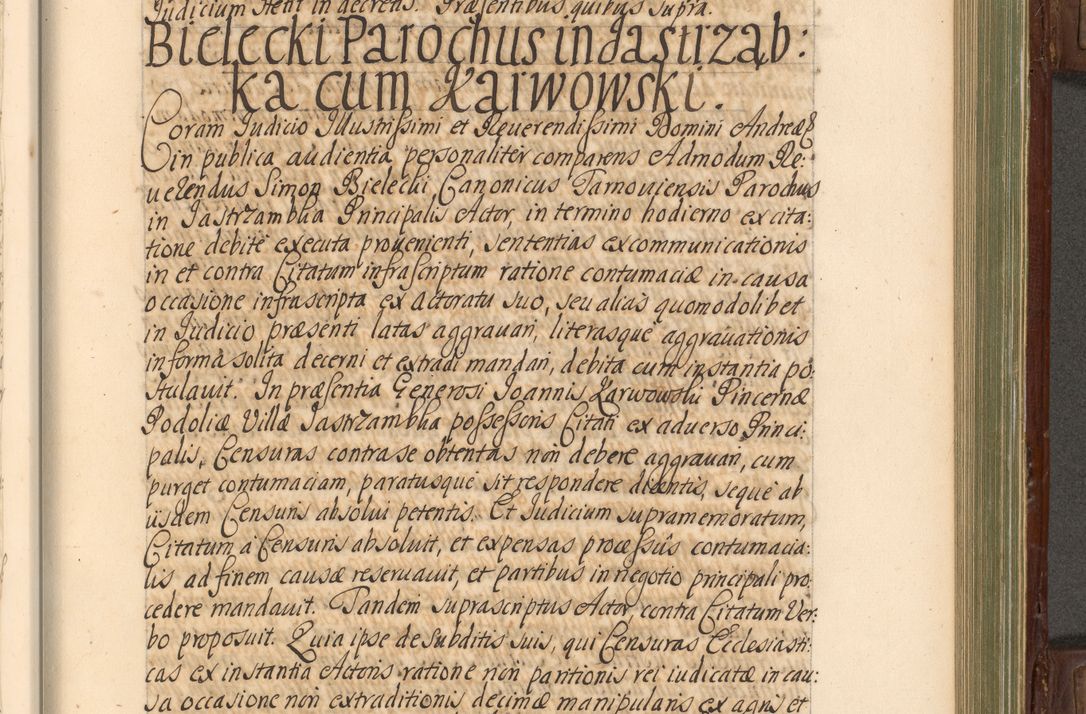 Judicium stent in decretis. Præsentibus quibus supra.
Bielecki Parochus in Jastrząb:
ka cum Karwowski.
Coram Judicio Illustrissimi et Reuerendissimi Domini Andreæ &
in publica audientia personaliter comparens Admodum Re:
uerendus Simon Bielecki, Canonicus Tarnouiensis Parochus
in Jastrzambka Principalis Actor, in termino hodierno ex cita:
tione debite executa prouenienti, sententias excommunicationis
in et contra Citatum infrascriptum ratione contumaciæ in causa
occasione infrascripta ex actoratu suo, seu alias quomodolibet
in Judicio præsenti latas aggrauari, literasque aggrauationis
in forma solita decerni et extradi mandari, debita cum instantia po:
stulauit. In præsentia Generosi Joannis Karwowski Pincernæ
Podoliæ Villæ Jastrzambka possessoris Citati ex aduerso Princi:
palis, Censuras contra se obtentas non debere aggrauari, cum
purget contumaciam, paratusque sit respondere dicentis, seque ab
iisdem Censuris absolui petentis. Et Judicium supramemoratum,
Citatum à Censuris absoluit, et expensas processûs contumacia:
lis ad finem causæ reseruauit, et partibus in negotio principali pro:
cedere mandauit. Tandem suprascriptus Actor, contra Citatum Ver:
bo proposuit. Quia ipse de subditis suis, qui Censuras Ecclesiasti:
cas ex instantia Actoris ratione non paritionis rei iudicatæ in cau:
sa occasione non extraditionis decimæ manipularis ex agris et